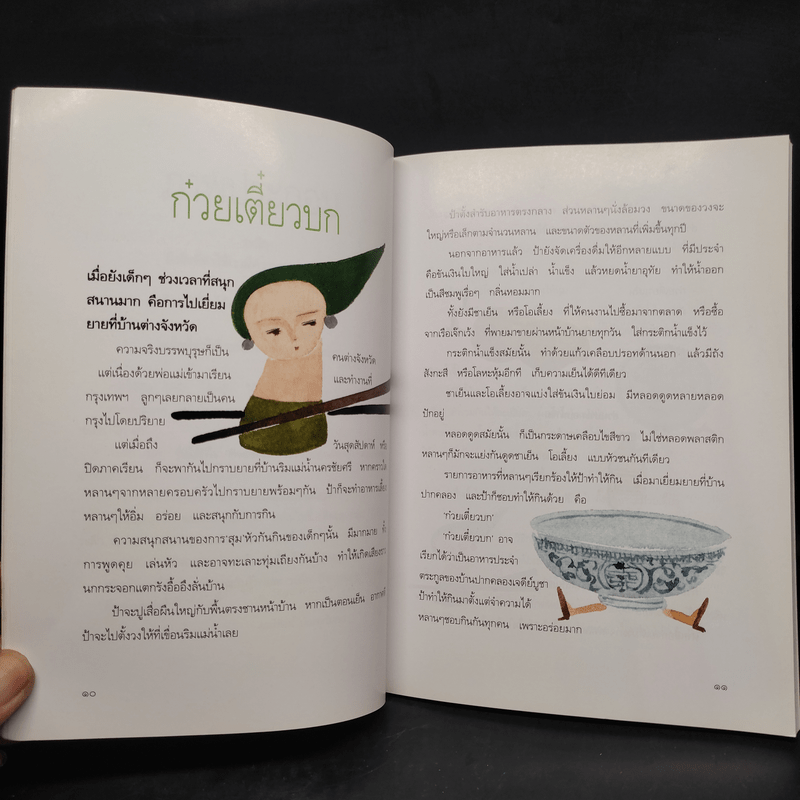 ก๋วยเตี๋ยวบก
เมื่อยังเด็กๆ ช่วงเวลาที่สนุก
สนานมาก คือการไปเยี่ยม
ยายที่บ้านต่างจังหวัด
ความจริงบรรพบุรุษก็เป็น คนต่างจังหวัด
แต่เนื่องด้วยพ่อแม่เข้ามาเรียน และทำงานที่
กรุงเทพฯ ลูกๆเลยกลายเป็นคน
กรุงไปโดยปริยาย
แต่เมื่อถึง วันสุดสัปดาห์
ปิดภาคเรียน ก็จะพากันไปกราบยายที่บ้านริมแม่น้ำนครชัยศรี
หลานๆจากหลายครอบครัวไปกราบยายพร้อมๆกัน ป้าก็จะทำอาหารเลี้ยง
หลานๆให้อิ่ม อร่อย และสนุกกับการกิน
ความสนุกสนานของการ'สุม'หัวกันกินของเด็กๆนั้น มีมากมาย
การพูดคุย เล่นหัว และอาจทะเลาะทุ่มเถียงกันบ้าง ทำให้เกิดเสียงราว
นกกระจอกแตกรังอื้ออึงลั่นบ้าน
ป้าจะปูเสื่อผืนใหญ่กับพื้นตรงชานหน้าบ้าน หากเป็นตอนเย็น
ป้าจะไปตั้งวงให้ที่เขื่อนริมแม่น้ำเลย
๑๐
ป้าตั้งสำรับอาหารตรงกลาง ส่วนหลานๆนั่งล้อมวง ขนาดของวงจะ
ใหญ่หรือเล็กตามจำนวนหลาน และขนาดตัวของหลานที่เพิ่มขึ้นทุกปี
นอกจากอาหารแล้ว ป้ายังจัดเครื่องดื่มให้อีกหลายแบบ ที่มีประจำ
คือขันเงินใบใหญ่ ใส่น้ำเปล่า น้ำแข็ง แล้วหยดน้ำยาอุทัย ทำให้น้ำออก
เป็นสีชมพูเรื่อๆ กลิ่นหอมมาก
ทั้งยังมีชาเย็น หรือโอเลี้ยง ที่ให้คนงานไปซื้อมาจากตลาด หรือซื้อ
จากเรือเจ๊กเว้ง ที่พายมาขายผ่านหน้าบ้านยายทุกวัน ใส่กระติกน้ำแข็งไว้
กระติกน้ำแข็งสมัยนั้น ทำด้วยแก้วเคลือบปรอทด้านนอก แล้วมีถัง
สังกะสี หรือโลหะหุ้มอีกที เก็บความเย็นได้ดีทีเดียว
ชาเย็นและโอเลี้ยงอาจแบ่งใส่ขันเงินใบย่อม มีหลอดดูดหลายหลอด
ปักอยู่
หลอดดูดสมัยนั้น ก็เป็นกระดาษเคลือบไขสีขาว ไม่ใช่หลอดพลาสติก
หลานๆก็มักจะแย่งกันดูดชาเย็น โอเลี้ยง แบบหัวชนกันทีเดียว
รายการอาหารที่หลานๆเรียกร้องให้ป้าทำให้กิน เมื่อมาเยี่ยมยายที่บ้าน
ปากคลอง และป้าก็ชอบทำให้กินด้วย คือ
'ก๋วยเตี๋ยวบก'
'ก๋วยเตี๋ยวบก' อาจ
เรียกได้ว่าเป็นอาหารประจำ
ตระกูลของบ้านปากคลองเจดีย์บูชา
ป้าทำให้กินมาตั้งแต่จำความได้
หลานๆชอบกินกันทุกคน เพราะอร่อยมาก
๑๑